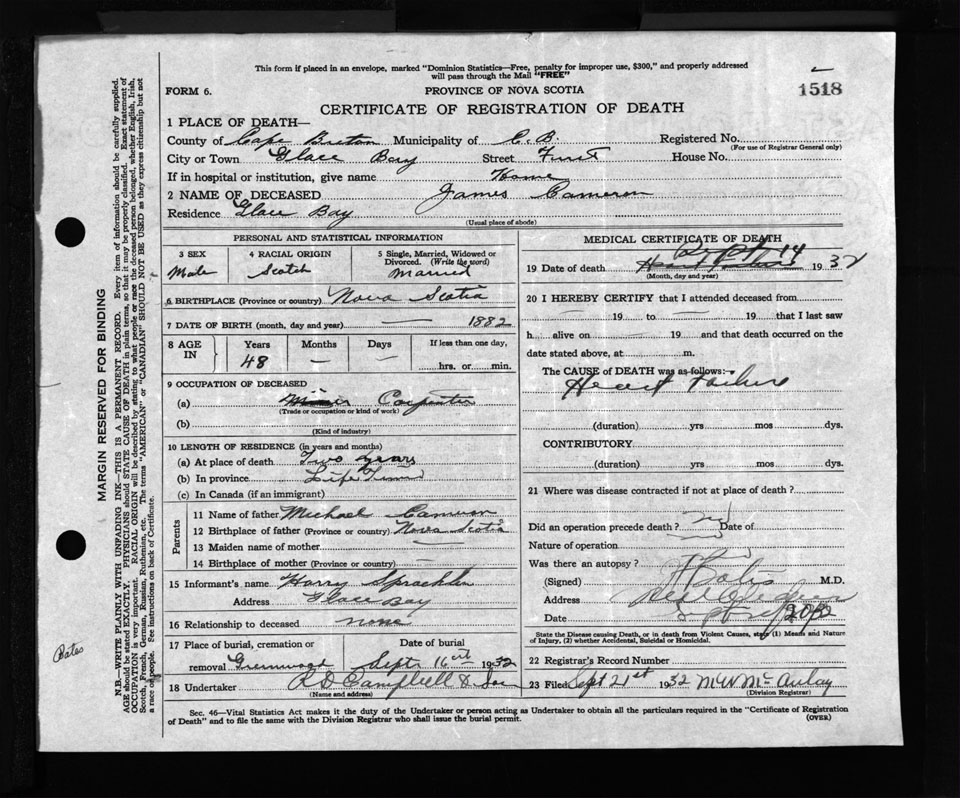 This form if placed in an envelope, marked "Dominion Statistics—Free, penalty for improper use, $300," and properly addressed
will pass through the Mail "FREE"
FORM 6.
PROVINCE OF NOVA SCOTIA
1518
CERTIFICATE OF REGISTRATION OF DEATH
1 PLACE OF DEATH—
County of Cape Breton Municipality of C.B. Registered No.
(For use of Registrar General only)
City or Town Glace Bay Street First House No.
If in hospital or institution, give name Home
2 NAME OF DECEASED James Cameron
Residence Glace Bay
(Usual place of abode)
PERSONAL AND STATISTICAL INFORMATION
3 SEX 4 RACIAL ORIGIN 5 Single, Married, Widowed or
Divorced. (Write the word)
Male Scotch Married
6 BIRTHPLACE (Province or country) Nova Scotia
7 DATE OF BIRTH (month, day and year) — 1882
8 AGE IN Years Months Days If less than one day,
48 — — hrs. or min.
9 OCCUPATION OF DECEASED
(a) Miner Carpenter
(Trade or occupation or kind of work)
(b)
(Kind of industry)
10 LENGTH OF RESIDENCE (in years and months)
(a) At place of death Two years
(b) In province Life Time
(c) In Canada (if an immigrant)
Parents
11 Name of father Michael Cameron
12 Birthplace of father (Province or country) Nova Scotia
13 Maiden name of mother —
14 Birthplace of mother (Province or country) —
15 Informant's name Harry Spracklin
Address Glace Bay
16 Relationship to deceased none
17 Place of burial, cremation or Date of burial
removal Greenwood Sept 16th 1932
18 Undertaker R D Campbell & Son
(Name and address)
MEDICAL CERTIFICATE OF DEATH
Sept 14
19 Date of death 1932
(Month, day and year)
20 I HEREBY CERTIFY that I attended deceased from
— 19 to — 19 that I last saw
h alive on — 19 and that death occurred on
date stated above, at m.
The CAUSE of DEATH was as follows:-
Heart Failure
(duration) yrs mos dys.
CONTRIBUTORY
(duration) yrs mos dys.
21 Where was disease contracted if not at place of death?
Did an operation precede death? no Date of
Nature of operation
Was there an autopsy?
(Signed) M.D.
Address
Date Sept
State the Disease causing Death, or in death from Violent Causes, state (1) Means and Nature
of Injury, (2) whether Accidental, Suicidal or Homicidal.
22 Registrar's Record Number
23 Filed Sept 21st 1932 McAulay
(Division Registrar)
Sec. 46—Vital Statistics Act makes it the duty of the Undertaker or person acting as Undertaker to obtain all the particulars required in the "Certificate of Registration
of Death" and to file the same with the Division Registrar who shall issue the burial permit.
(OVER)
MARGIN RESERVED FOR BINDING
N.B.—WRITE PLAINLY WITH UNFADING INK—THIS IS A PERMANENT RECORD. Every item of information should be carefully supplied.
AGE should be stated EXACTLY. PHYSICIANS should STATE CAUSE OF DEATH in plain terms, so that it may be properly classified. Exact statement of
OCCUPATION is very important. RACIAL ORIGIN will be described by stating to what people or race the deceased person belonged, whether English, Irish,
Scotch, French, German, Russian, Ruthenian, etc. The terms "AMERICAN" or "CANADIAN" SHOULD NOT BE USED as they express citizenship but not
a race or people. See instructions on back of Certificate.
Bates